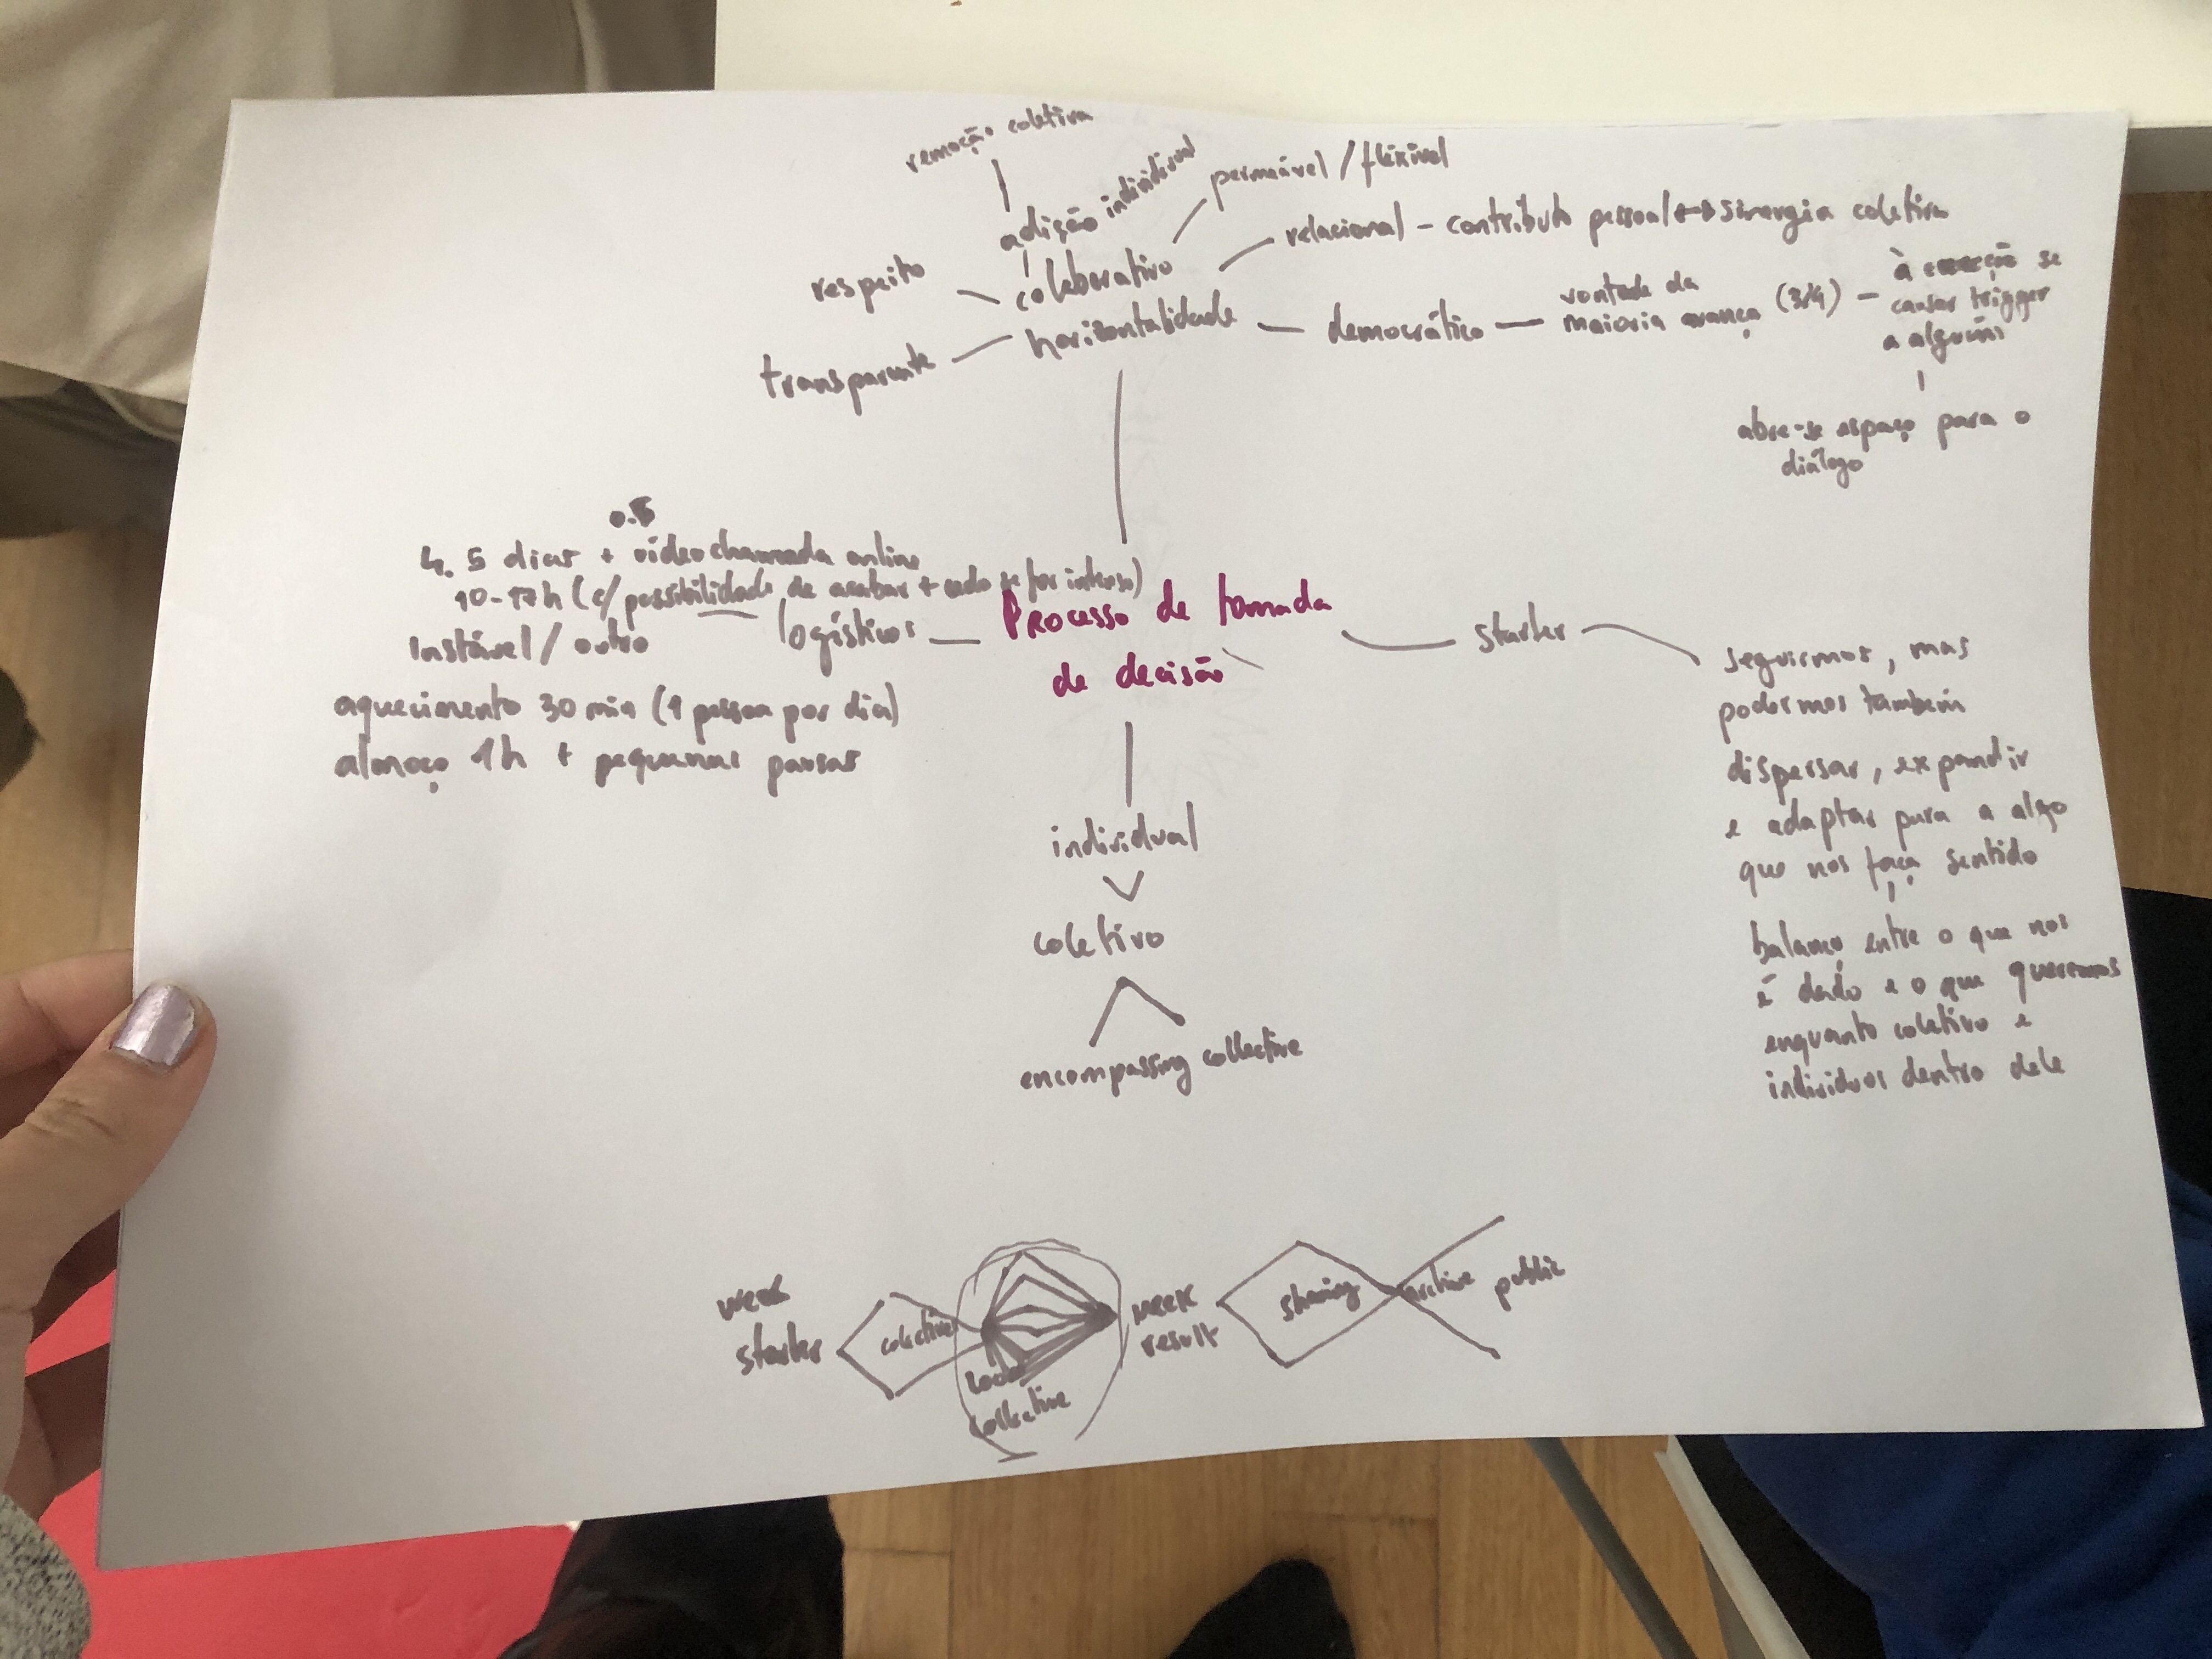 remoção coletiva
adição individual
permeável / flexivel
relacional - contributo pessoal ↔ sinergia coletiva
respeito
colaborativo
horizontalidade
transparente
democrático
vontade da
maioria avança (3/4)
à exceção se
causar trigger
a alguém
abre-se espaço para o
diálogo
0.5
4.5 dias + vídeochamada online
10-17h (c/ possibilidade de acabar + cedo se for intenso)
Instável / outro
logísticos
aquecimento 30 min (1 pessoa por dia)
almoço 1h + pequenas pausas
Processo de tomada
de decisão
starter
seguirmos, mas
podermos também
dispersar, expandir
e adaptar para a algo
que nos faça sentido
balanço entre o que nos
é dado e o que queremos
enquanto coletivo e
individuos dentro dele
individual
coletivo
encompassing collective
week
starter
colective
local
collective
week
result
sharing
archive
public